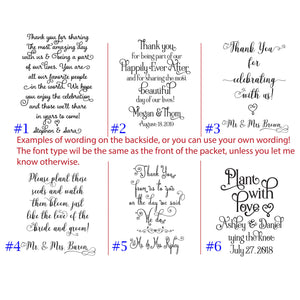 Thank you for sharing
the most amazing day
with us & being a part of
our lives. You are
all our favorite people
in the world. We hope
you enjoy the celebration
and those we'll share
in years to come!
#1 Stephen & Sara
Thank you
for being part of our
Happily Ever After
and for sharing the most
beautiful
day of our lives!
Megan & Thom
#2 August 18, 2019
Thank You
for
celebrating
with us!
#3 Mr. & Mrs. Brown
Examples of wording on the backside, or you can use your own wording!
The font type wil be the same as the front of the packet, unless you let me
know otherwise.
Please plant these
seeds and watch
them bloom, just
like the love of the
bride and groom!
#4 Mr. & Mrs. Bacon
Thank You
from us to you
on the day we said
We do
#5
Plant
with
love
Ashley & Daniel
tying the knot
#6 July 27, 2018